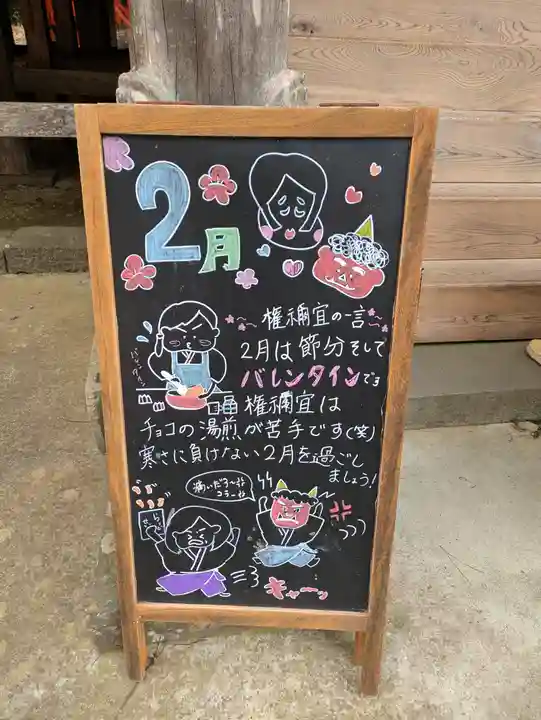 2月
～権禰宜の一言～
2月は節分そして
バレンタインですョ
権禰宜は
チョコの湯煎が苦手です(笑)
寒さに負けない2月を過ごし
ましょう!
キャーッ